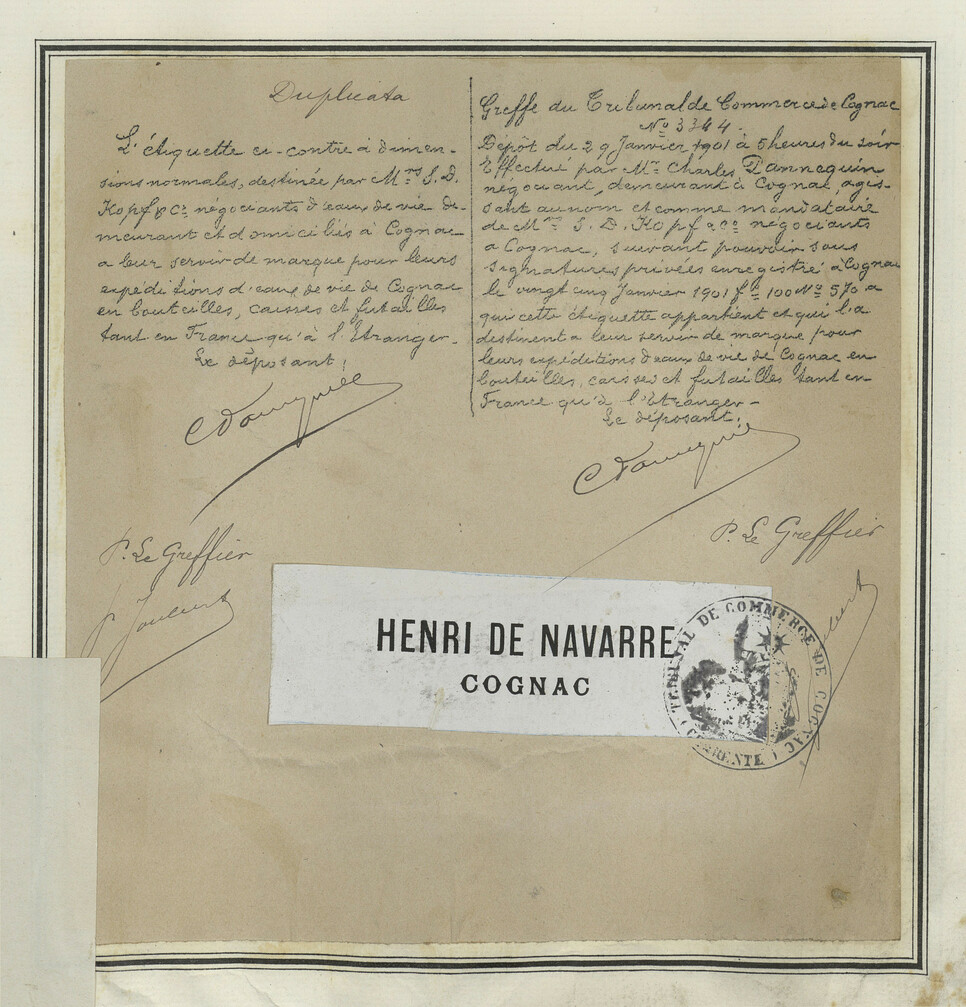 Duplicata
L'étiquette ci-contre à dimen-
sions normales, destinée par Mrs S. D.
Kopf & Co négociants d'eaux de vie de-
meurant et domiciliés à Cognac
a leur servir de marque pour leurs
expéditions d'eaux de vie de Cognac
en bouteilles, caisses et futailles
tant en France qu'à l'Etranger-
Le déposant,
Greffe du Tribunal de Commerce de Cognac
No 3344.
Dépôt du 29 Janvier 1901 à 5 heures du soir
Effectué par Mr Charles Dannequin
négociant, demeurant à Cognac, agis-
sant au nom et comme mandataire
de Mrs S. D. Kopf & Co négociants
a Cognac, suivant pouvoir sous
signatures privées enregistré à Cognac
le vingt cinq Janvier 1901 fo 100 No 570 a
qui cette étiquette appartient et qui l'a
destinent a leur servir de marque pour
leurs expéditions d'eaux de vie de Cognac en
bouteilles, caisses et futailles tant en
France qu'à l'Etranger-
Le déposant,
P. Le Greffier
P. Le Greffier
HENRI DE NAVARRE
COGNAC
TRIBUNAL DE COMMERCE DE COGNAC
(CHARENTE)